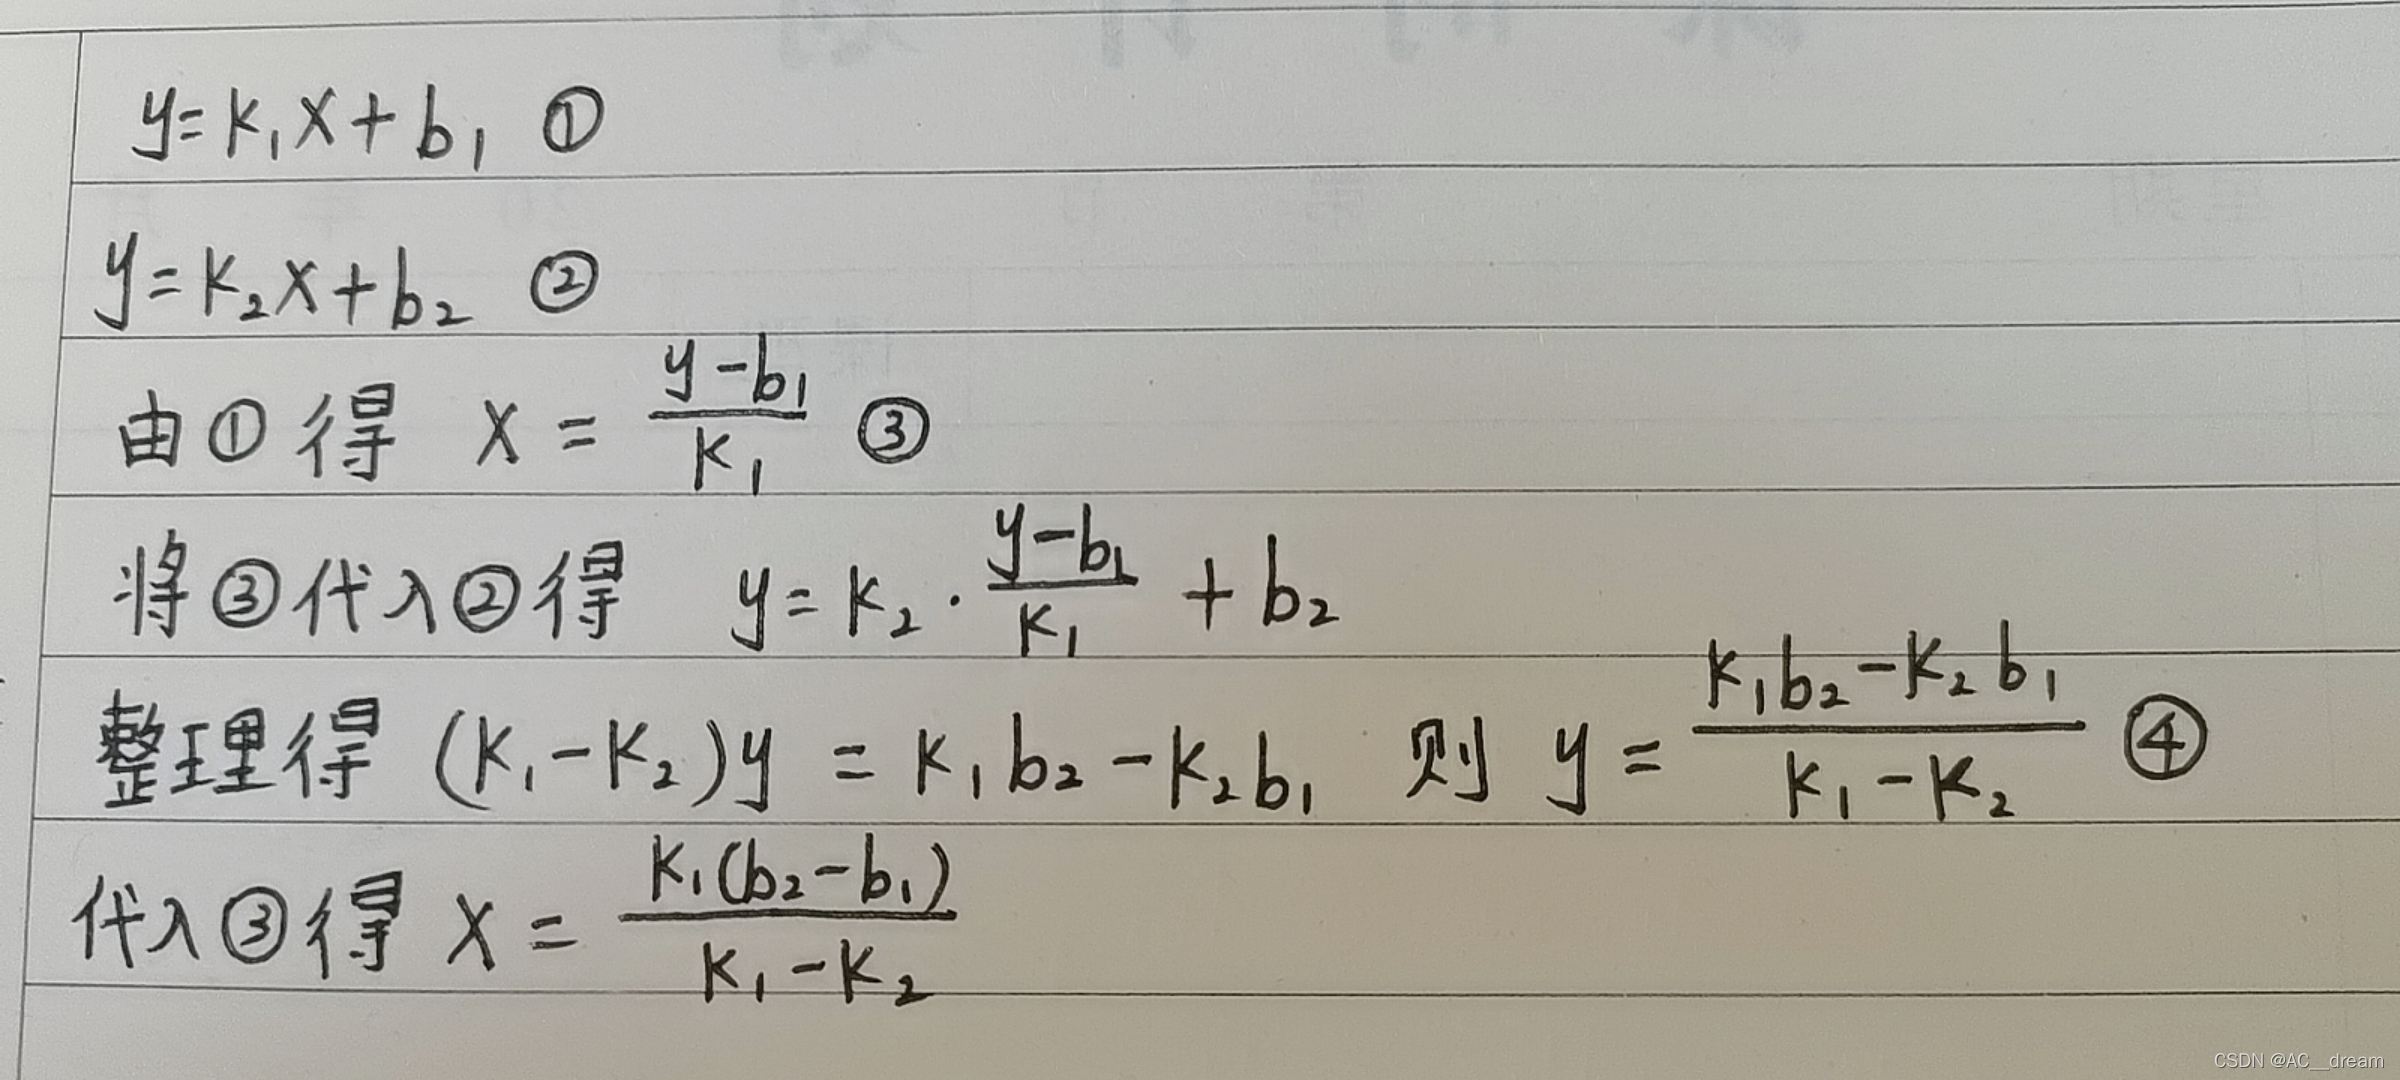 y=k₁x+b₁ ①
y=k₂x+b₂ ②
由①得 x = (y-b₁)/k₁ ③
将③代入②得 y=k₂·(y-b₁)/k₁ + b₂
整理得 (k₁-k₂)y = k₁b₂-k₂b₁ 则 y = (k₁b₂-k₂b₁)/(k₁-k₂) ④
代入③得 x = k₁(b₂-b₁)/(k₁-k₂)
CSDN @AC__dream